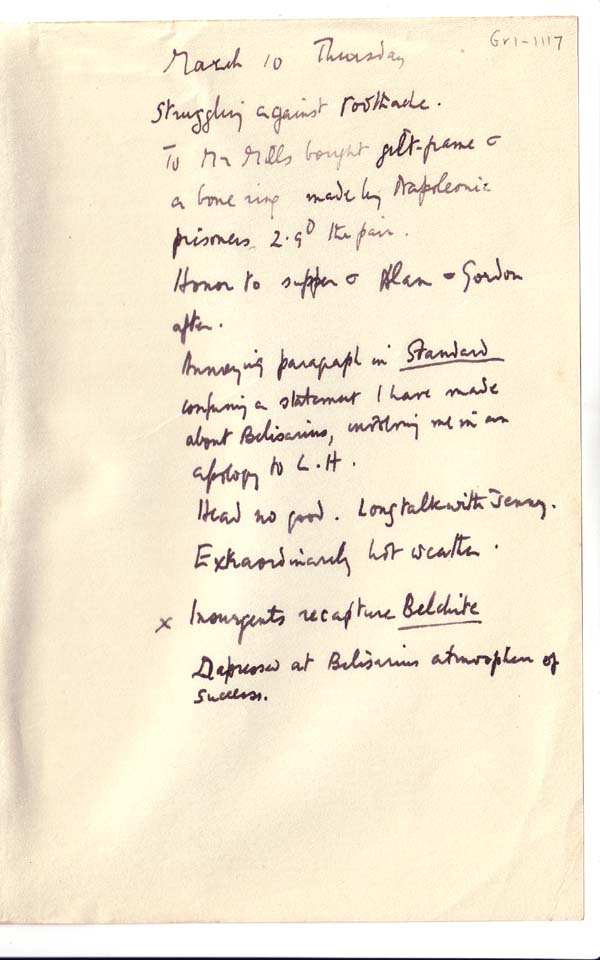 Gr1-1117
March 10 Thursday
Struggling against toothache.
To Mr Mills bought gilt-frame &
a bone ring made by Napoleonic
prisoners, 2.9D the pair.
Honor to supper & Alan & Gordon
after.
Annoying paragraph in Standard
confusing a statement I have made
about Belisarius, involving me in an
apology to L.H.
Head no good. Long talk with Jenny.
Extraordinarily hot weather.
x Insurgents recapture Belchite
Depressed at Belisarius atmosphere of
success.